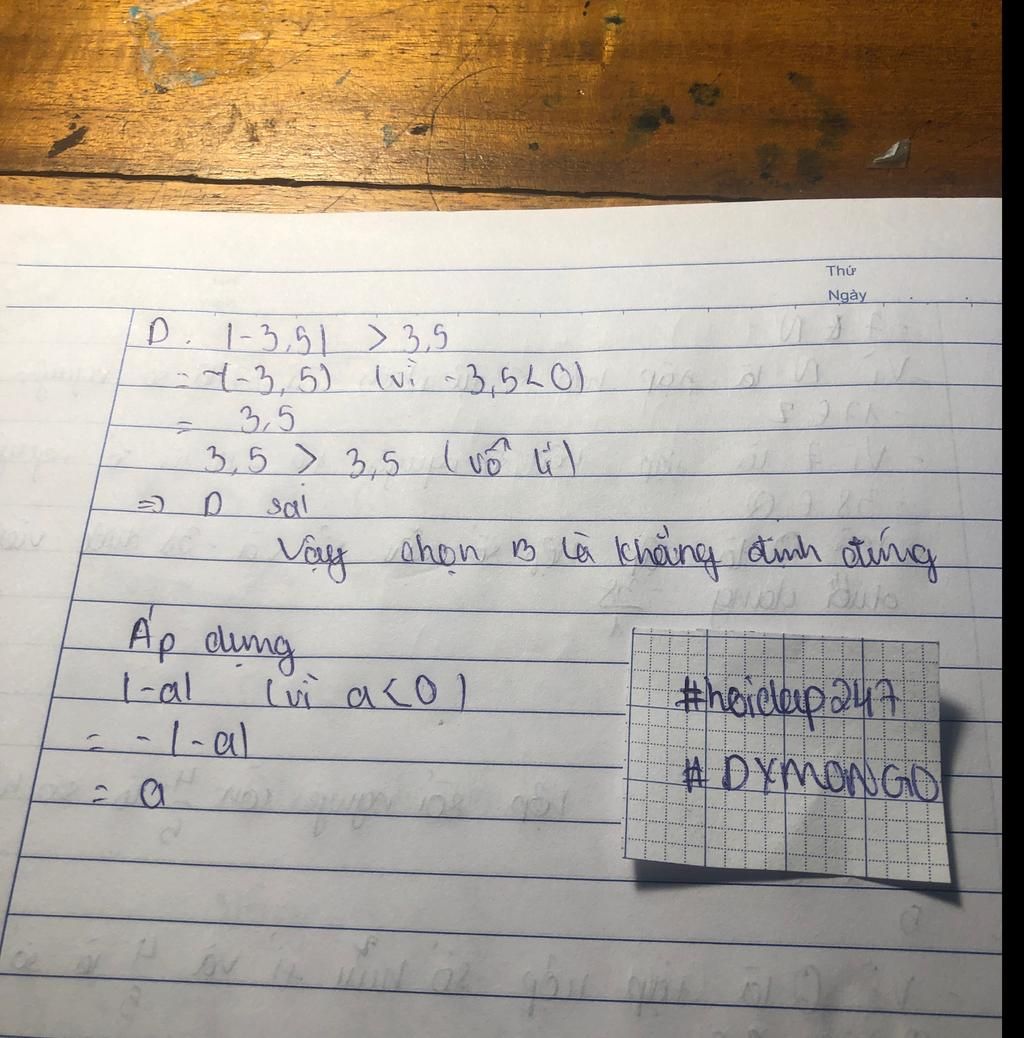 Thứ
Ngày
D. |-3,5| > 3,5
= -(-3,5) (vì -3,5<0)
= 3,5
3,5 > 3,5 (vô lí)
=> D sai
Vậy chọn B là khẳng định đúng
Áp dụng
|-a| (vì a<0)
= -|-a|
= a
#hoidap247
# DYMONGO